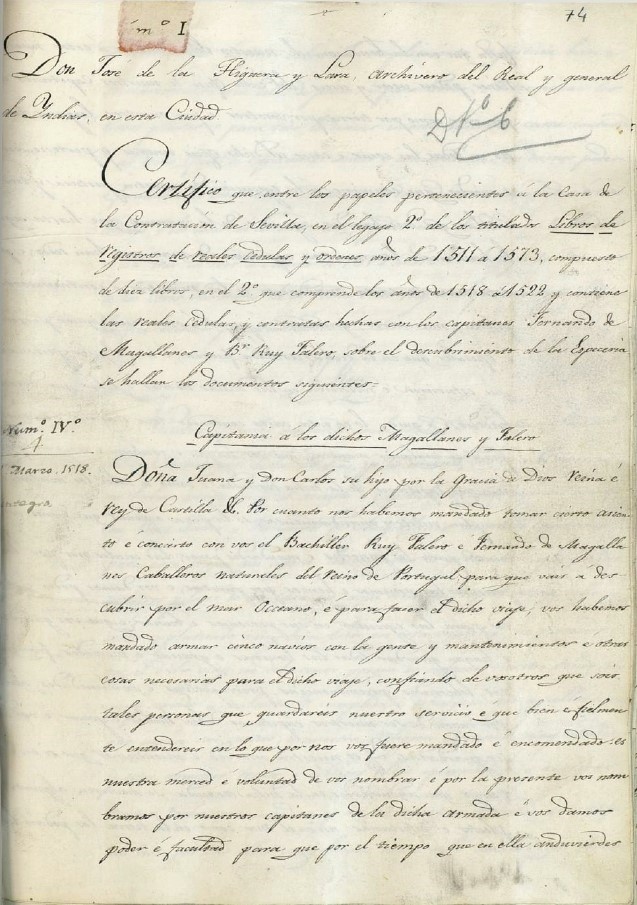 mº I
74
Don José de la Higuera y Lara, archivero del Real y general
de Yndias, en esta Ciudad.
D Nº 6
Certifico que entre los papeles pertenecientes á la Casa de
la Contratacion de Sevilla, en el legajo 2º de los titulados Libros de
registros de reales cedulas y ordenes años de 1511 á 1573, compuesto
de diez libros, en el 2º que comprende los años de 1518 á 1522 y contiene
las reales cedulas, y contratas hechas con los capitanes Fernando de
Magallanes y Br. Ruy Falero, sobre el descubrimiento de la Especeria
se hallan los documentos siguientes=
Num.º IV.º
1
Capitania á los dichos Magallanes y Falero
Marzo. 1518.
integro
Doña Juana y don Carlos su hijo por la gracia de Dios reina é
rey de Castilla &c. Por cuanto nos habemos mandado tomar cierto asien
to é concierto con vos el Bachiller Ruy Falero é Fernando de Magalla
nes Caballeros naturales del reino de Portugal para que vais a des
cubrir por el mar Occeano, é para facer el dicho viaje, vos habemos
mandado armar cinco navios con la gente y mantenimientos é otras
cosas necesarias para el dicho viaje, confiando de vosotros que sois
tales personas que guardareis nuestro servicio é que bien é fielmen
te entendereis en lo que por nos vos fuere mandado é encomendado: es
nuestra merced e voluntad de vos nombrar é por la presente vos nom
bramos por nuestros capitanes de la dicha armada é vos damos
poder é facultad para que por el tiempo que en ella anduvierdes